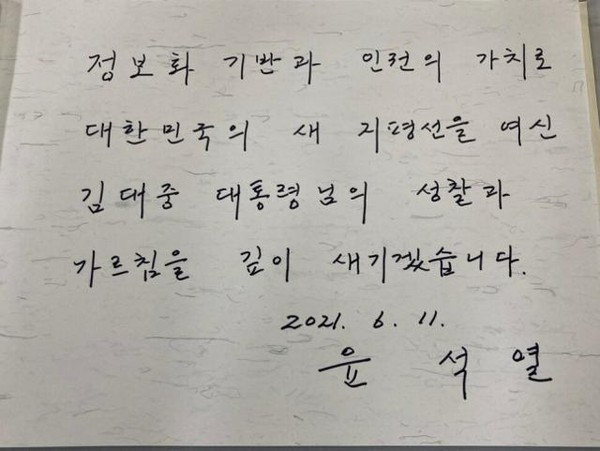 정보화 기반과 인권의 가치로
대한민국의 새 지평선을 여신
김대중 대통령님의 성찰과
가르침을 깊이 새기겠습니다.
2021. 6. 11.
윤 석 열